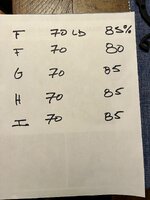 F 70 LB 85%
F 70 80
G 70 85
H 70 85
I 70 85